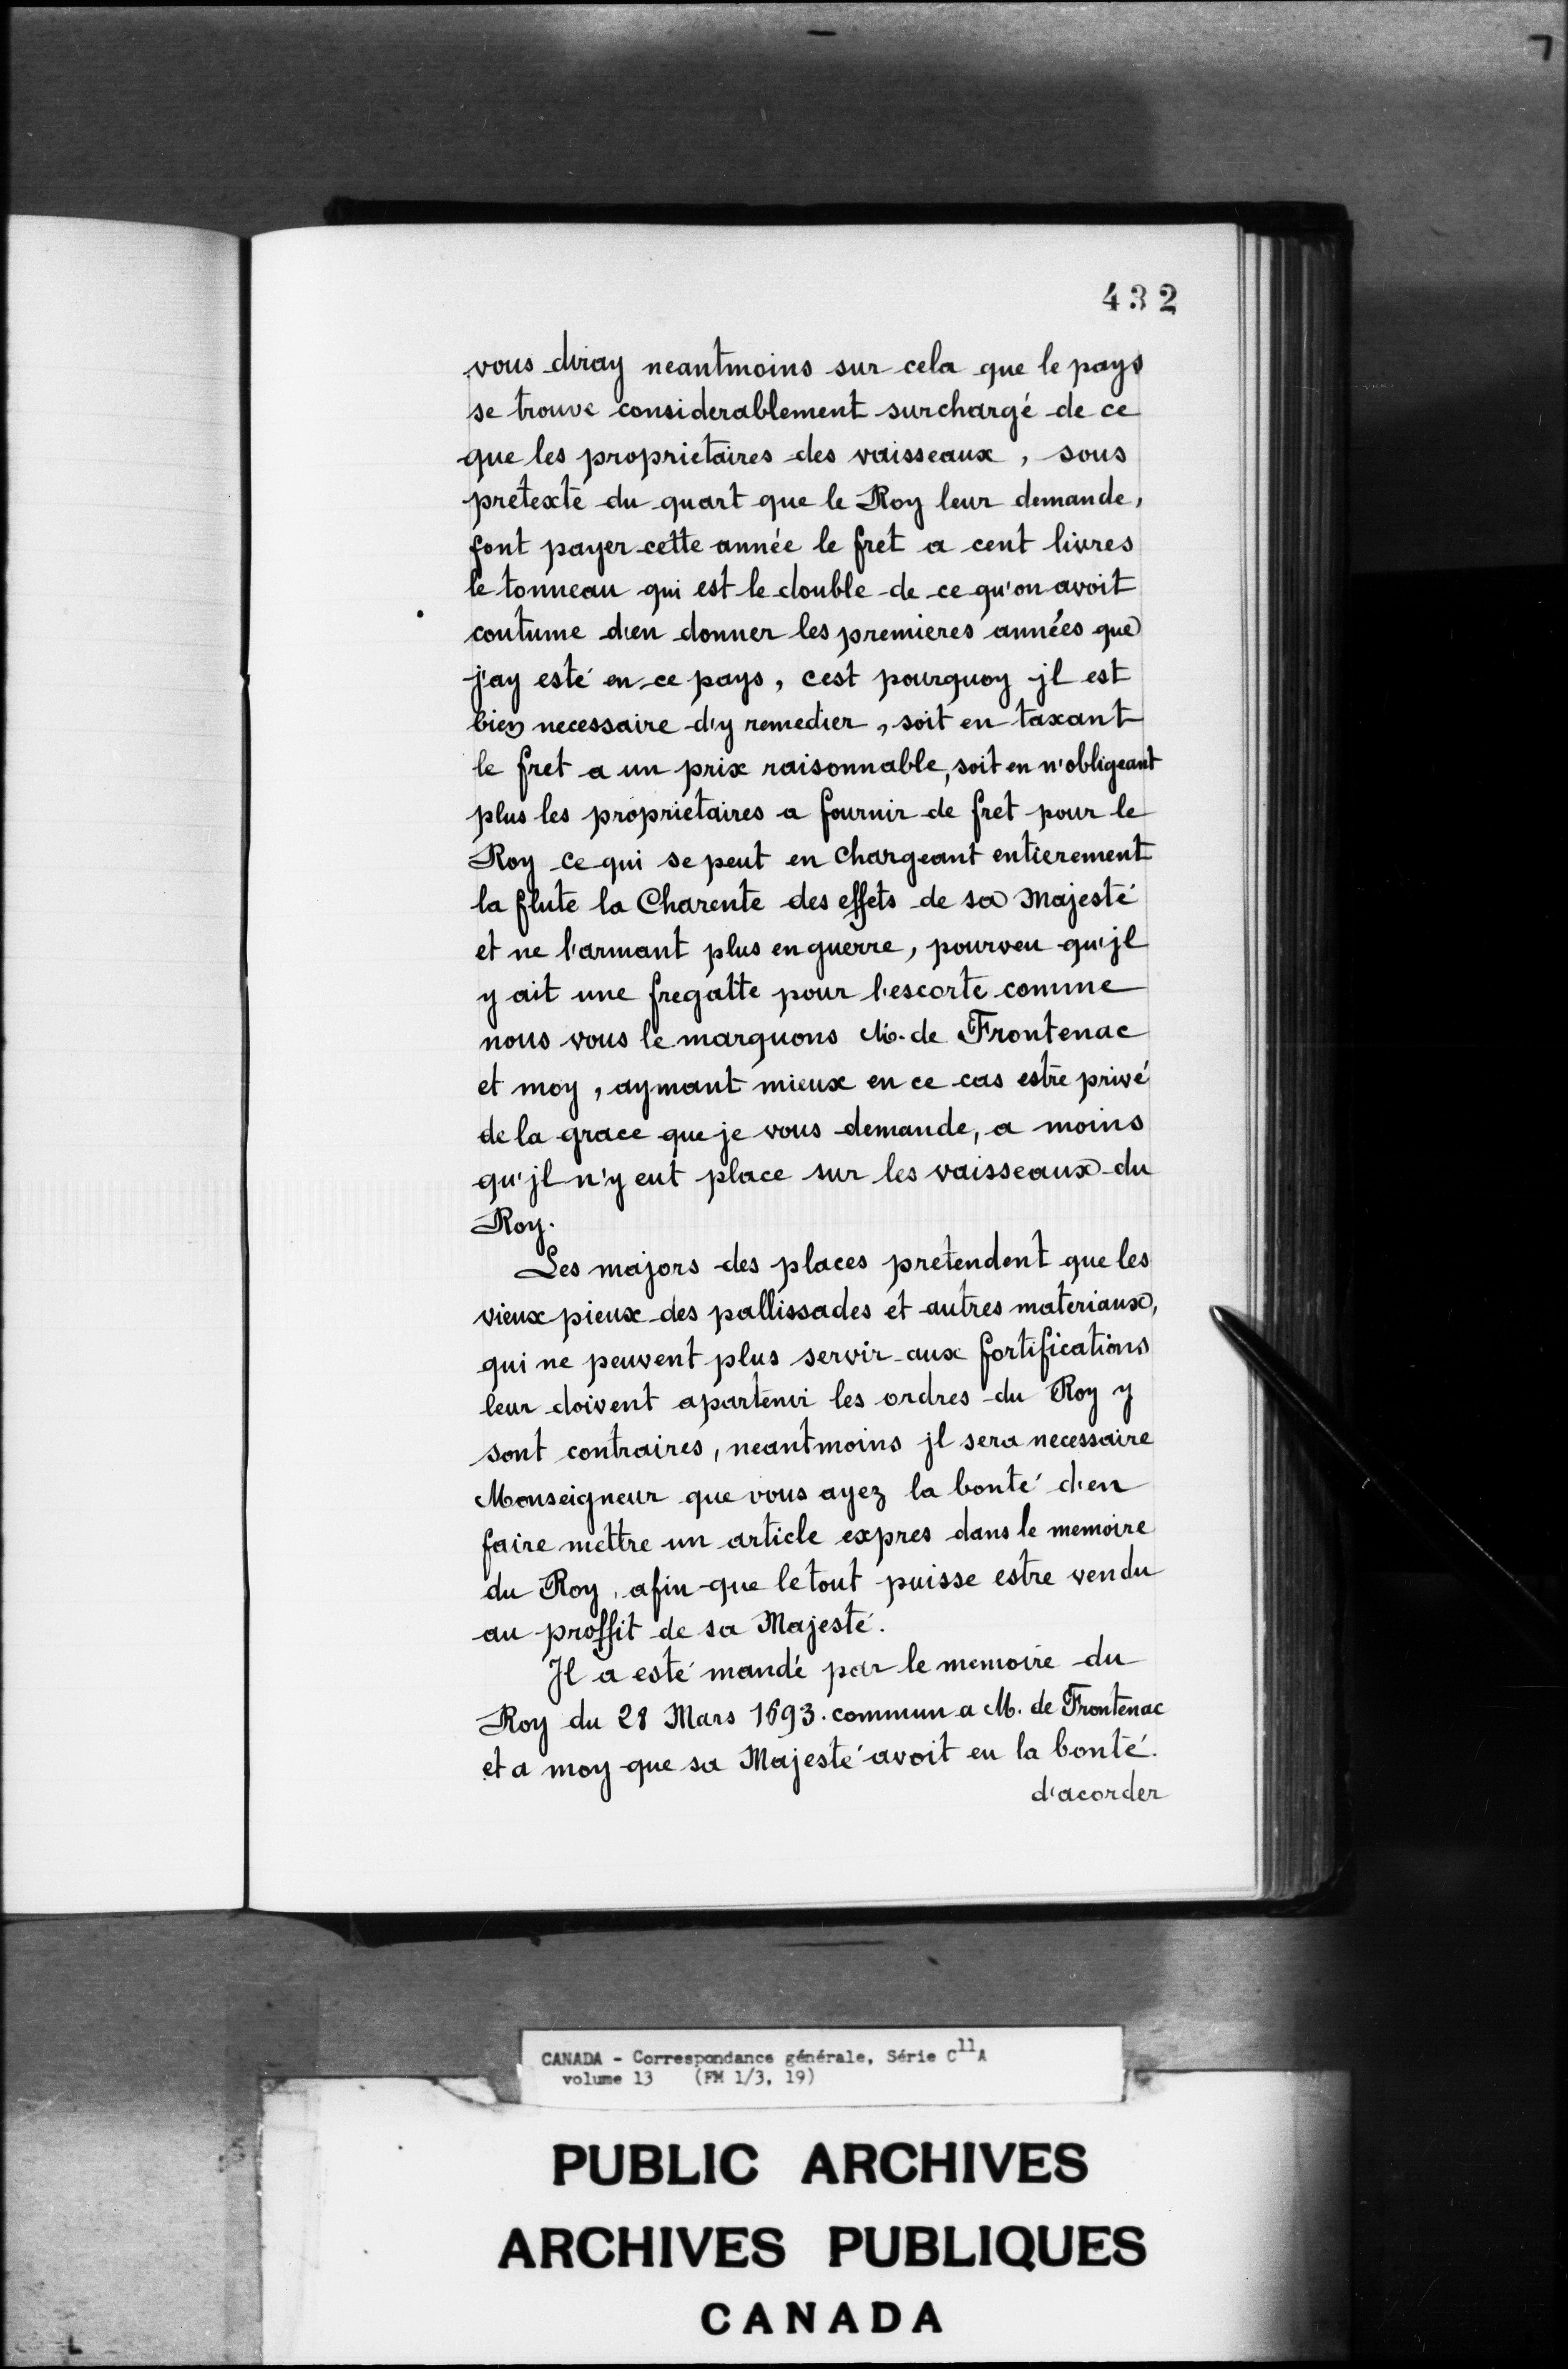 7
432
vous diray neantmoins sur cela que le pays
se trouve considerablement surchargé de ce
que les proprietaires des vaisseaux, sous
pretexte du quart que le Roy leur demande,
font payer cette année le fret a cent livres
le tonneau qui est le double de ce qu'on avoit
coutume d'en donner les premieres années que
j'ay esté en ce pays, c'est pourquoy jl est
bien necessaire d'y remedier, soit en taxant
le fret a un prix raisonnable, soit en n'obligeant
plus les proprietaires a fournir de fret pour le
Roy ce qui se peut en chargeant entierement
la flute la Charente des effets de sa Majesté
et ne l'armant plus en guerre, pourveu qu'jl
y ait une fregatte pour l'escorte comme
nous vous le marquons M. de Frontenac
et moy, aymant mieux en ce cas estre privé
de la grace que je vous demande, a moins
qu'jl n'y eut place sur les vaisseaux du
Roy.
Les majors des places pretendent que les
vieux pieux des pallissades et autres materiaux,
qui ne peuvent plus servir aux fortifications
leur doivent apartenir les ordres du Roy y
sont contraires, neantmoins jl sera necessaire
Monseigneur que vous ayez la bonté d'en
faire mettre un article expres dans le memoire
du Roy, afin que le tout puisse estre vendu
au proffit de sa Majesté.
Jl a esté mandé par le memoire du
Roy du 28 Mars 1693. commun a M. de Frontenac
et a moy que sa Majesté avoit eu la bonté.
d'acorder
CANADA - Correspondance générale, Série C11A
volume 13 (FM 1/3, 19)
PUBLIC ARCHIVES
ARCHIVES PUBLIQUES
CANADA